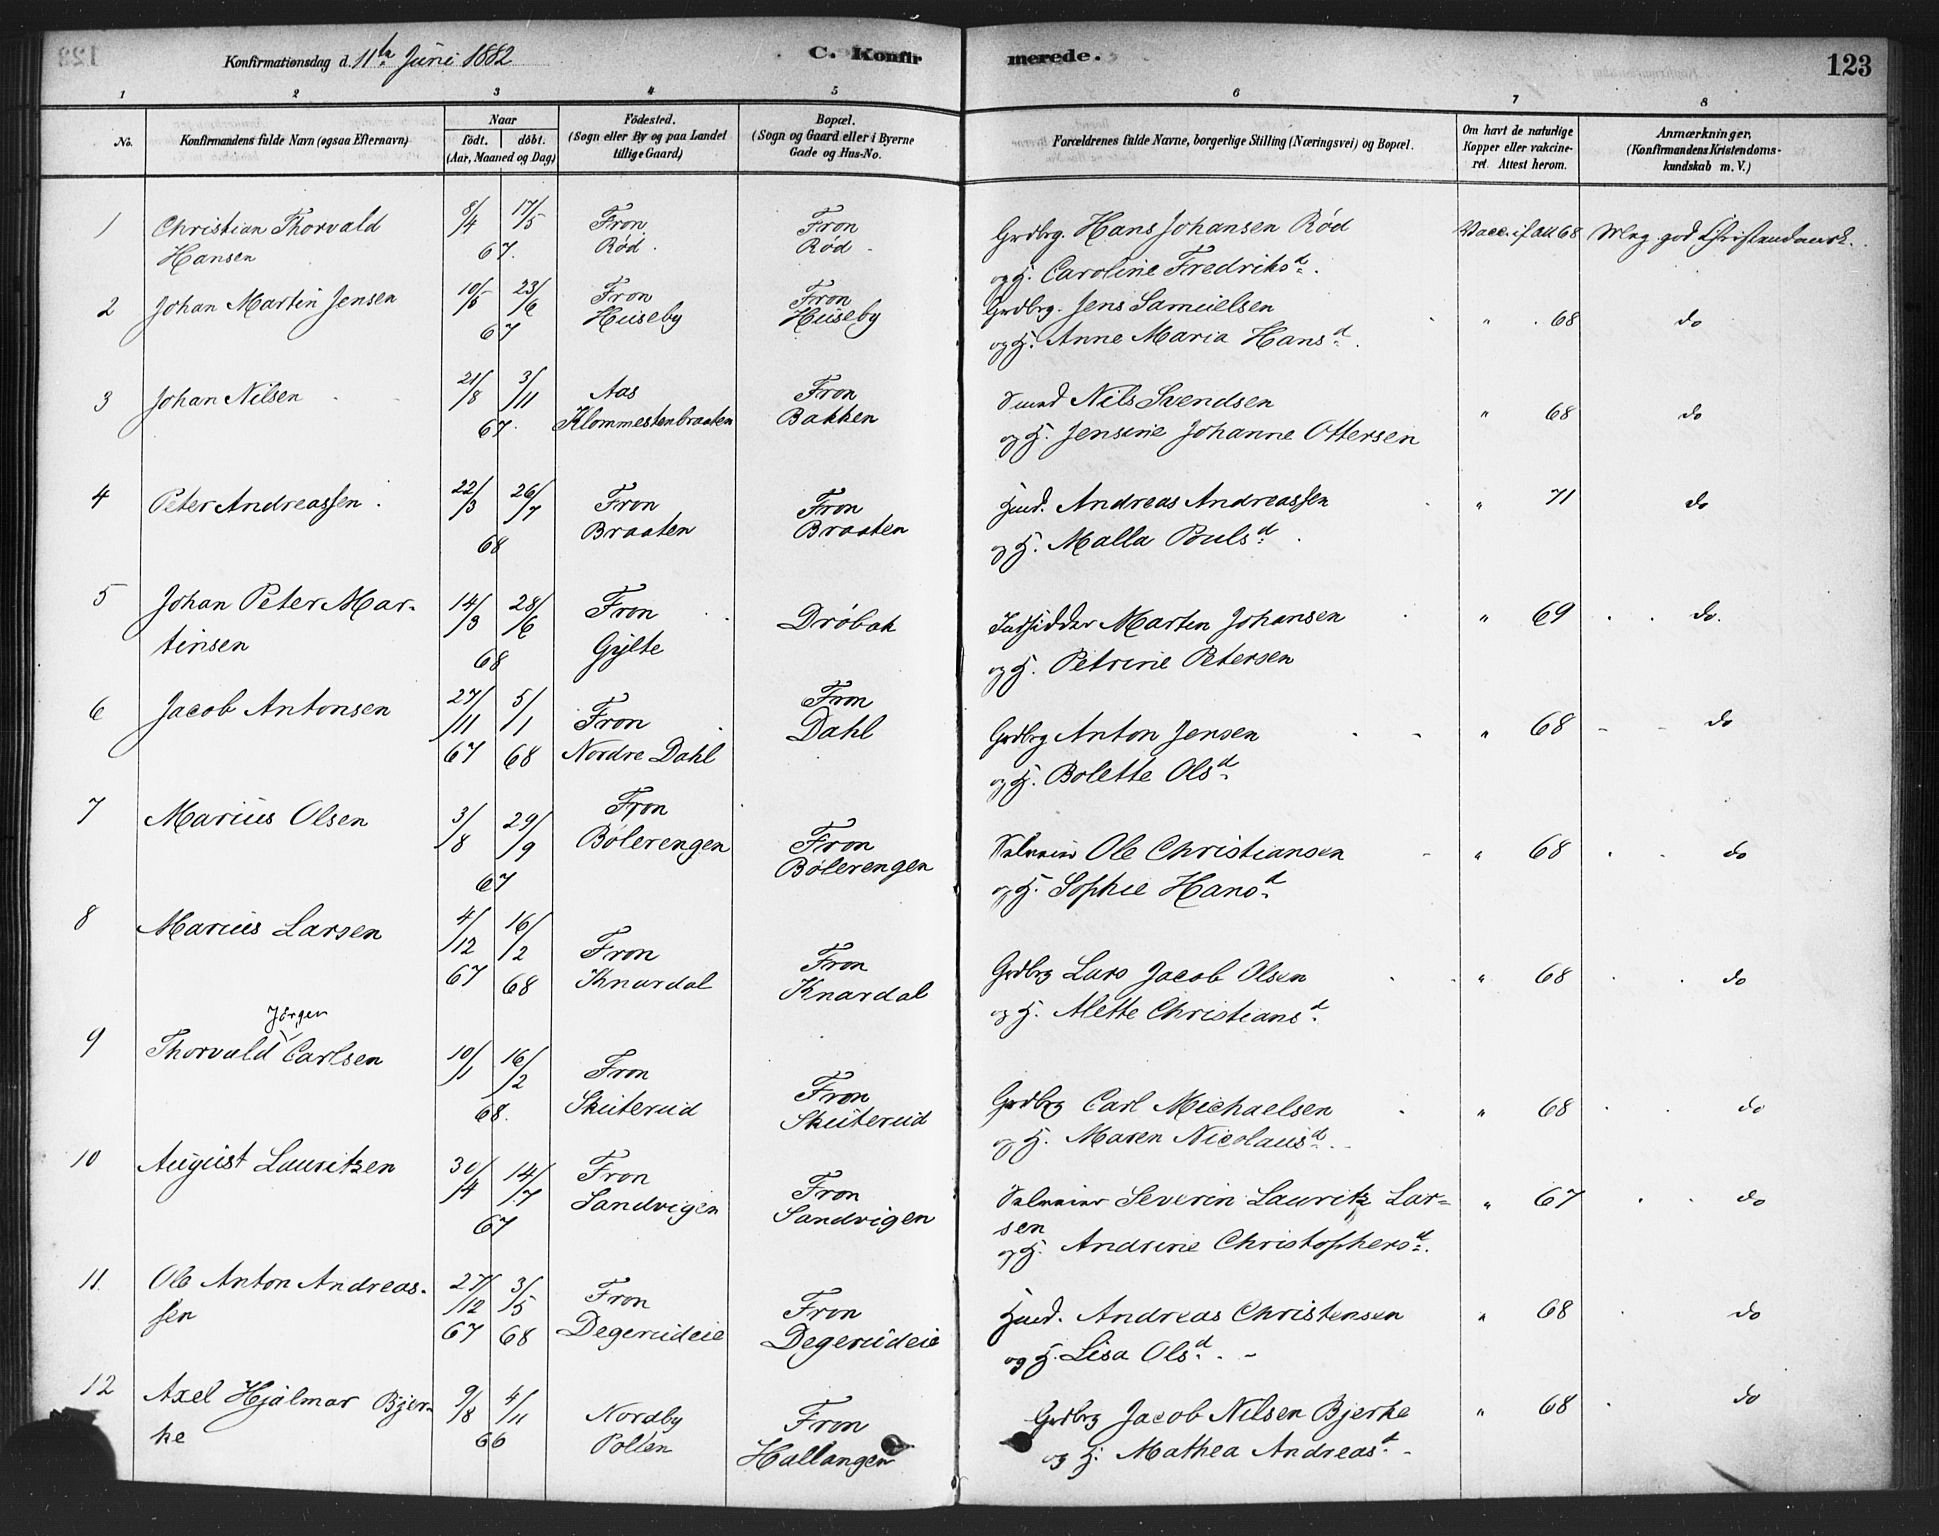 Konfirmationsdag d. 11te Juni 1882 C. Konfirmerede. 123
1 2 3 4 5 6 7 8
No. Konfirmandens fulde Navn (ogsaa Efternavn) Naar födt. döbt. (Aar, Maaned og Dag) Födested. (Sogn eller By og paa Landet tillige Gaard) Bopæl. (Sogn og Gaard eller i Byerne Gade og Hus-No. Forældrenes fulde Navne, borgerlige Stilling (Næringsvei) og Bopæl. Om havt de naturlige Kopper eller vakcineret. Attest herom. Anmærkninger. (Konfirmandens Kristendomskundskab m. V.)
1 Christian Thorvald 8/4 17/5 Fron Fron Grdbrg. Hans Johansen Rød Vacc. if att 68 Meg. god
Hansen 67. Rød. Rød og H. Caroline Fredriksd.
2 Johan Martin Jensen 10/5 23/6 Fron Fron Grdbrg. Jens Samuelsen " 68 do
67 Huseby Huseby og H. Anne Maria Hansd.
3 Johan Nilsen 21/8 3/11 Aas Fron Nils Svendsen " 68 do
67. Klommestenbraaten Bakken og H. Jensine Johanne Ottersen
4 Peter Andreassen. 22/3 26/7 Fron Fron Andreas Andreassen " 71 do
68 Braaten Braaten og H. Malla Poulsd.
5 Johan Peter Mar- 14/3 28/6 Fron Drøbak Indsidder Martin Johansen " 69 do.
tinsen 68 Gylte og H. Petrine Petersen
6 Jacob Antonsen 27/11 5/1 Fron Fron Grdbrg Anton Jensen " 68 do
67 68 Nordre Dahl Dahl og H. Bolette Olsd.
7 Marius Olsen 3/8 29/9 Fron Fron Selveier Ole Christiansen " 68 do
67 Bølerengen Bølerengen og H. Sophie Hansd.
8 Marius Larsen 4/12 16/2 Fron Fron Grdbrg Lars Jacob Olsen " 68 do
67 68 Knardal Knardal og H. Alette Christiansd.
Jørgen
9 Thorvald Carlsen 10/1 16/2 Fron Fron Grdbrg Carl Michaelsen " 68 do
68. Skuterud Skuterud og H. Maren Nicolausd.
10 August Lauritzen 30/4 14/7 Fron Fron Selveier Severin Lauritz Lar- " 67 do
sen
67 Sandvigen Sandvigen og H. Andrine Christophersd.
11. Ole Anton Andreas- 27/12 3/5 Fron Fron Andreas Christensen " 68 do
sen 67 68 Degerudeie Degerudeie og H. Lisa Olsd.
12 Axel Hjalmar Bjer- 9/8 4/11 Nordby Fron Grdbrg Jacob Nilsen Bjerke " 68 do
ke 66 Pollen Hallangen og H. Mathea Andreasd.